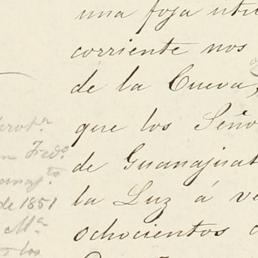 una foja util
corriente nos
de la Cueva,
que los Seño
de Guanajuat
la Luz á ve
ochocientos
Fedo.
de 1851
Ma.
los